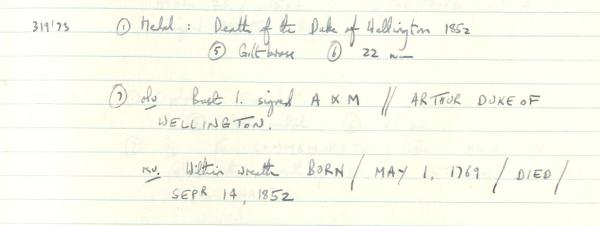 319'73 ① Medal : Death of the Duke of Wellington 1852
⑤ Gilt brass ⑥ 22 mm
⑦ obv. Bust l. signed A & M // ARTHUR DUKE OF
WELLINGTON.
rev. Within wreath BORN / MAY 1, 1769 / DIED /
SEPR 14, 1852